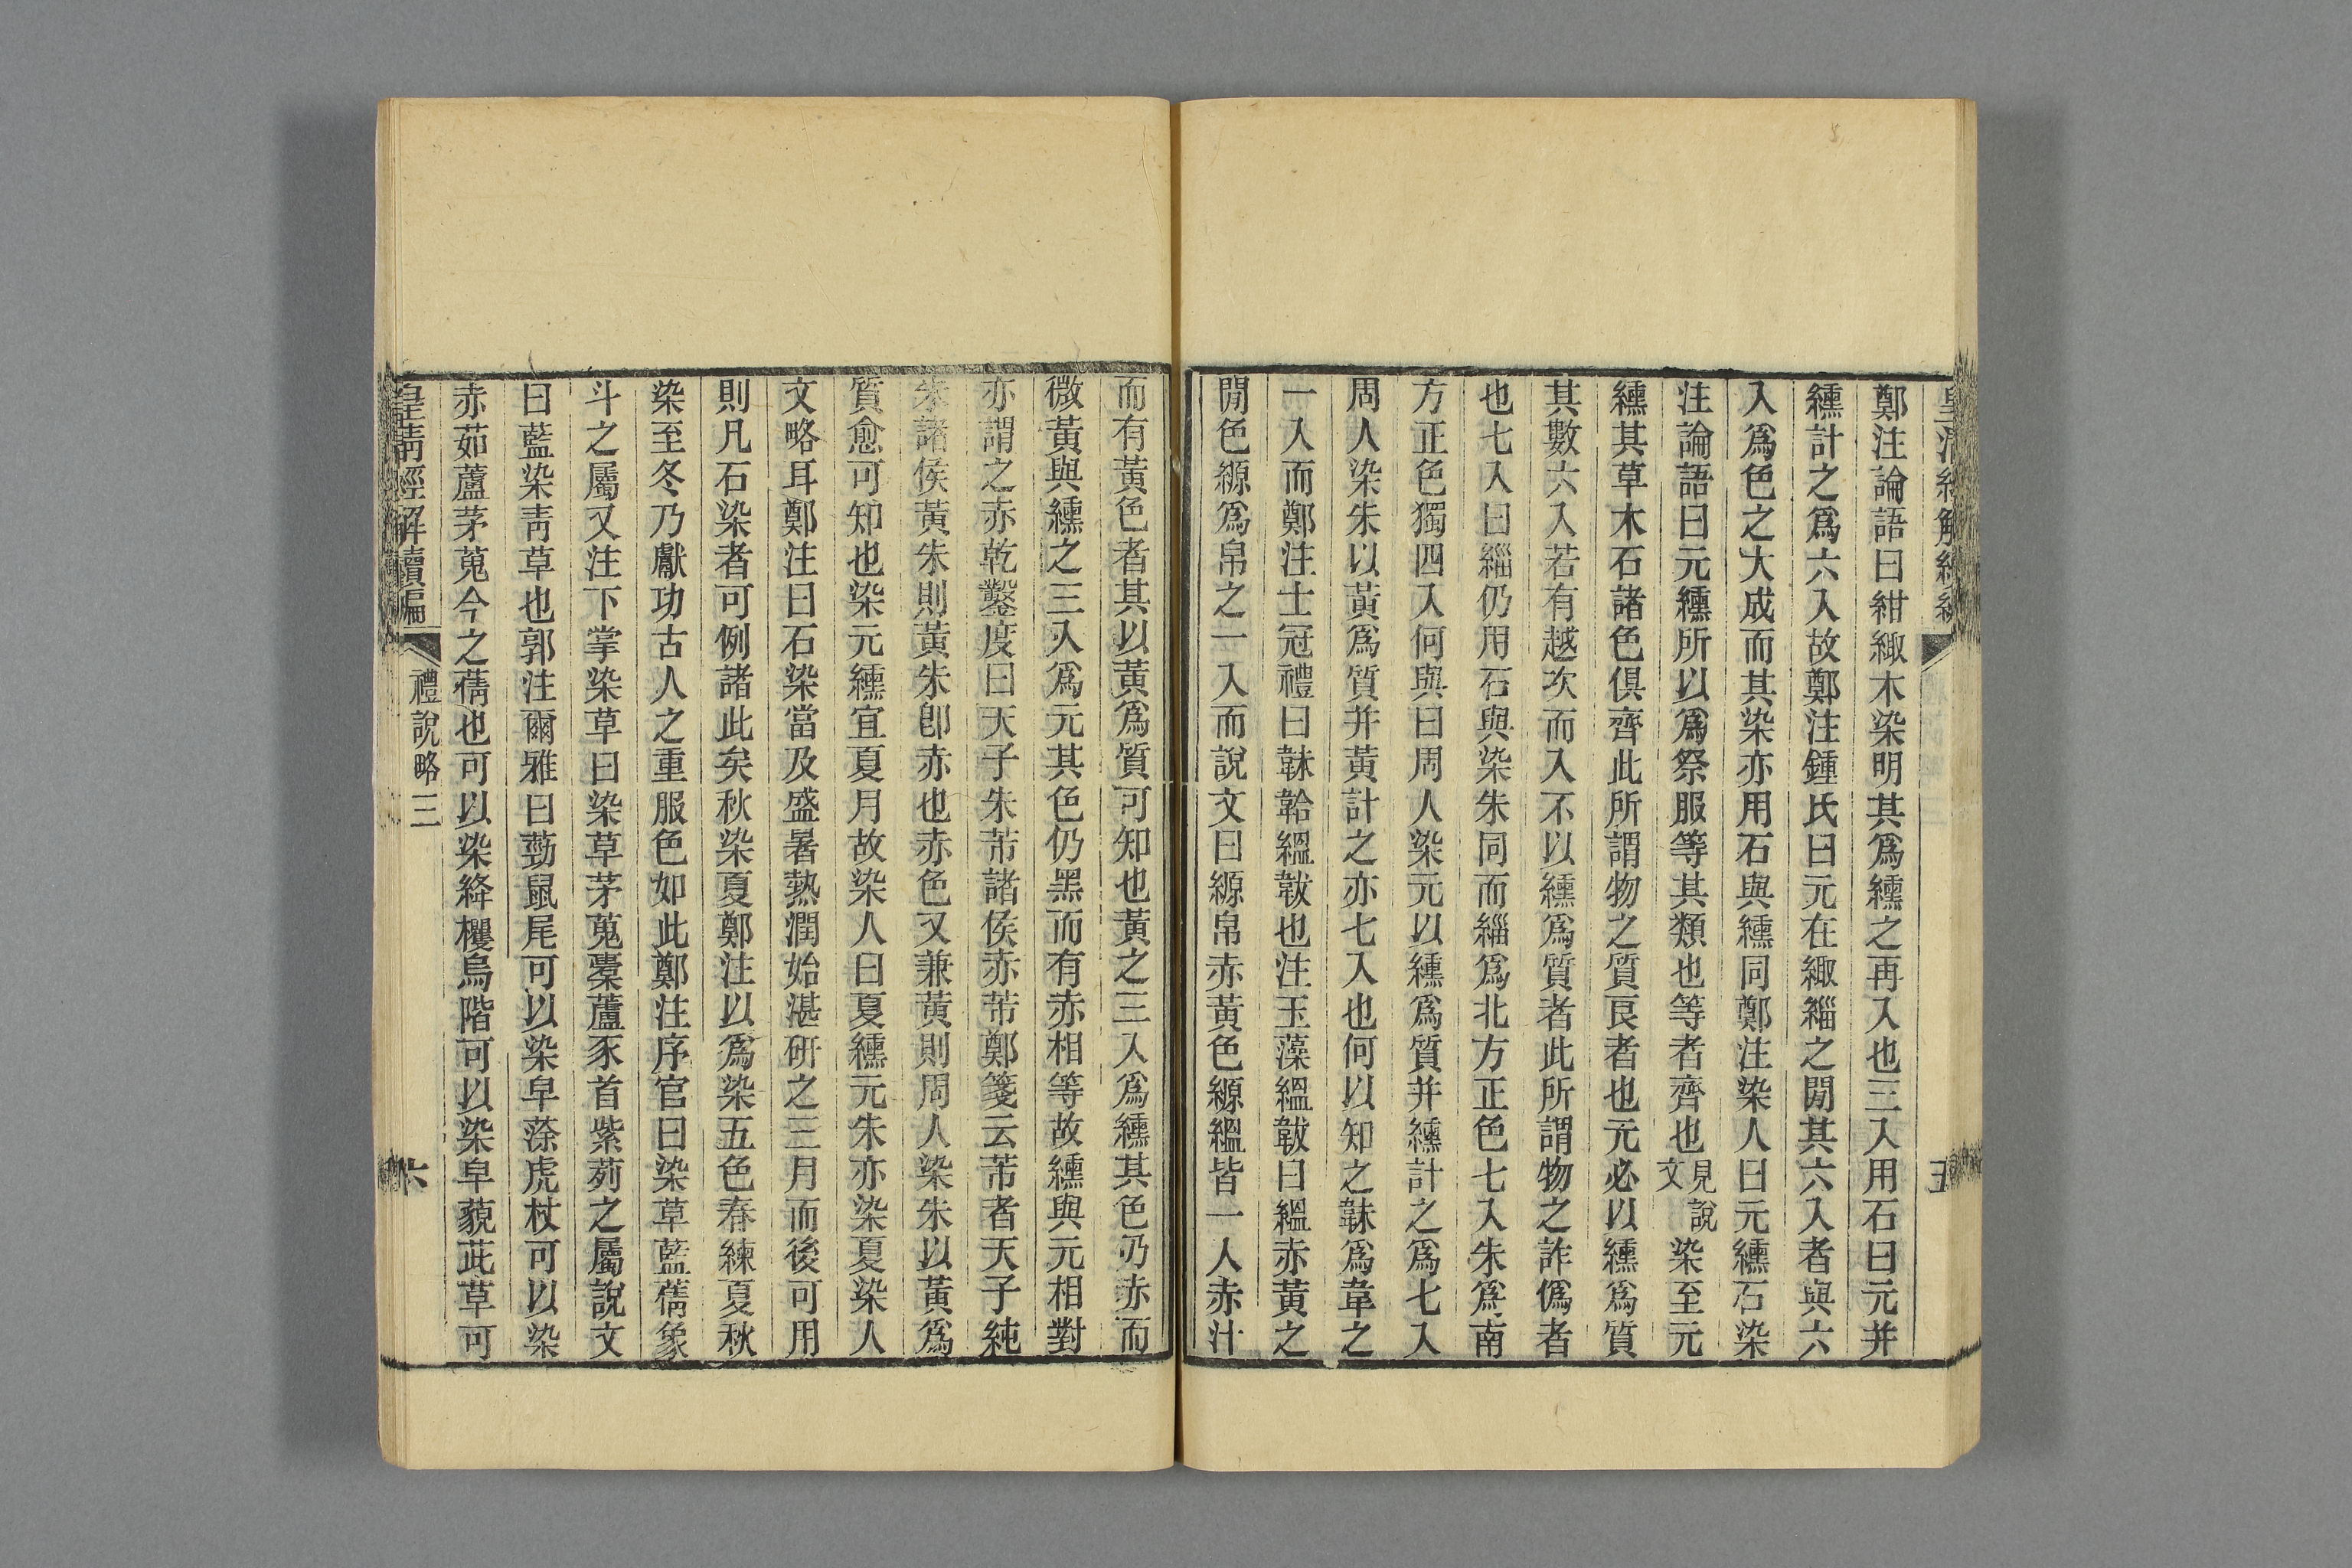 鄭注論語曰紺緅木染明其爲纁之再入也三入用石曰元并
纁計之爲六入故鄭注鍾氏曰元在緅緇之閒其六入者與六
入爲色之大成而其染亦用石與纁同鄭注染人曰元纁石染
注論語曰元纁所以爲祭服等其類也等者齊也見說文染至元
纁其草木石諸色俱齊此所謂物之質良者也元必以纁爲質
其數六入若有越次而入不以纁爲質者此所謂物之詐僞者
也七入曰緇仍用石與染朱同而緇爲北方正色七入朱爲南
方正色獨四入何與曰周人染元以纁爲質并纁計之爲七入
周人染朱以黃爲質并黃計之亦七入也何以知之韎爲韋之
一入而鄭注士冠禮曰韎韐縕韍也注玉藻縕韍曰縕赤黃之
閒色縓爲帛之一入而說文曰縓帛赤黃色縓縕皆一人赤汁
而有黃色者其以黃爲質可知也黃之三入爲纁其色乃赤而
微黃與纁之三入爲元其色仍黑而有赤相等故纁與元相對
亦謂之赤乾鑿度曰天子朱芾諸侯赤芾鄭箋云芾者天子純
朱諸侯黃朱則黃朱卽赤也赤色又兼黃則周人染朱以黃爲
質愈可知也染元纁宜夏月故染人曰夏纁元朱亦染夏染人
文略耳鄭注曰石染當及盛暑熱潤始湛研之三月而後可用
則凡石染者可例諸此矣秋染夏鄭注以爲染五色春練夏秋
染至冬乃獻功古人之重服色如此鄭注序官曰染草藍蒨象
斗之屬又注下掌染草曰染草茅蒐橐蘆豕首紫茢之屬說文
曰藍染靑草也郭注爾雅曰葝鼠尾可以染皁蒤虎杖可以染
赤茹藘茅蒐今之蒨也可以染絳欔烏階可以染皁藐茈草可
皇淸經解續編
禮說略三
六